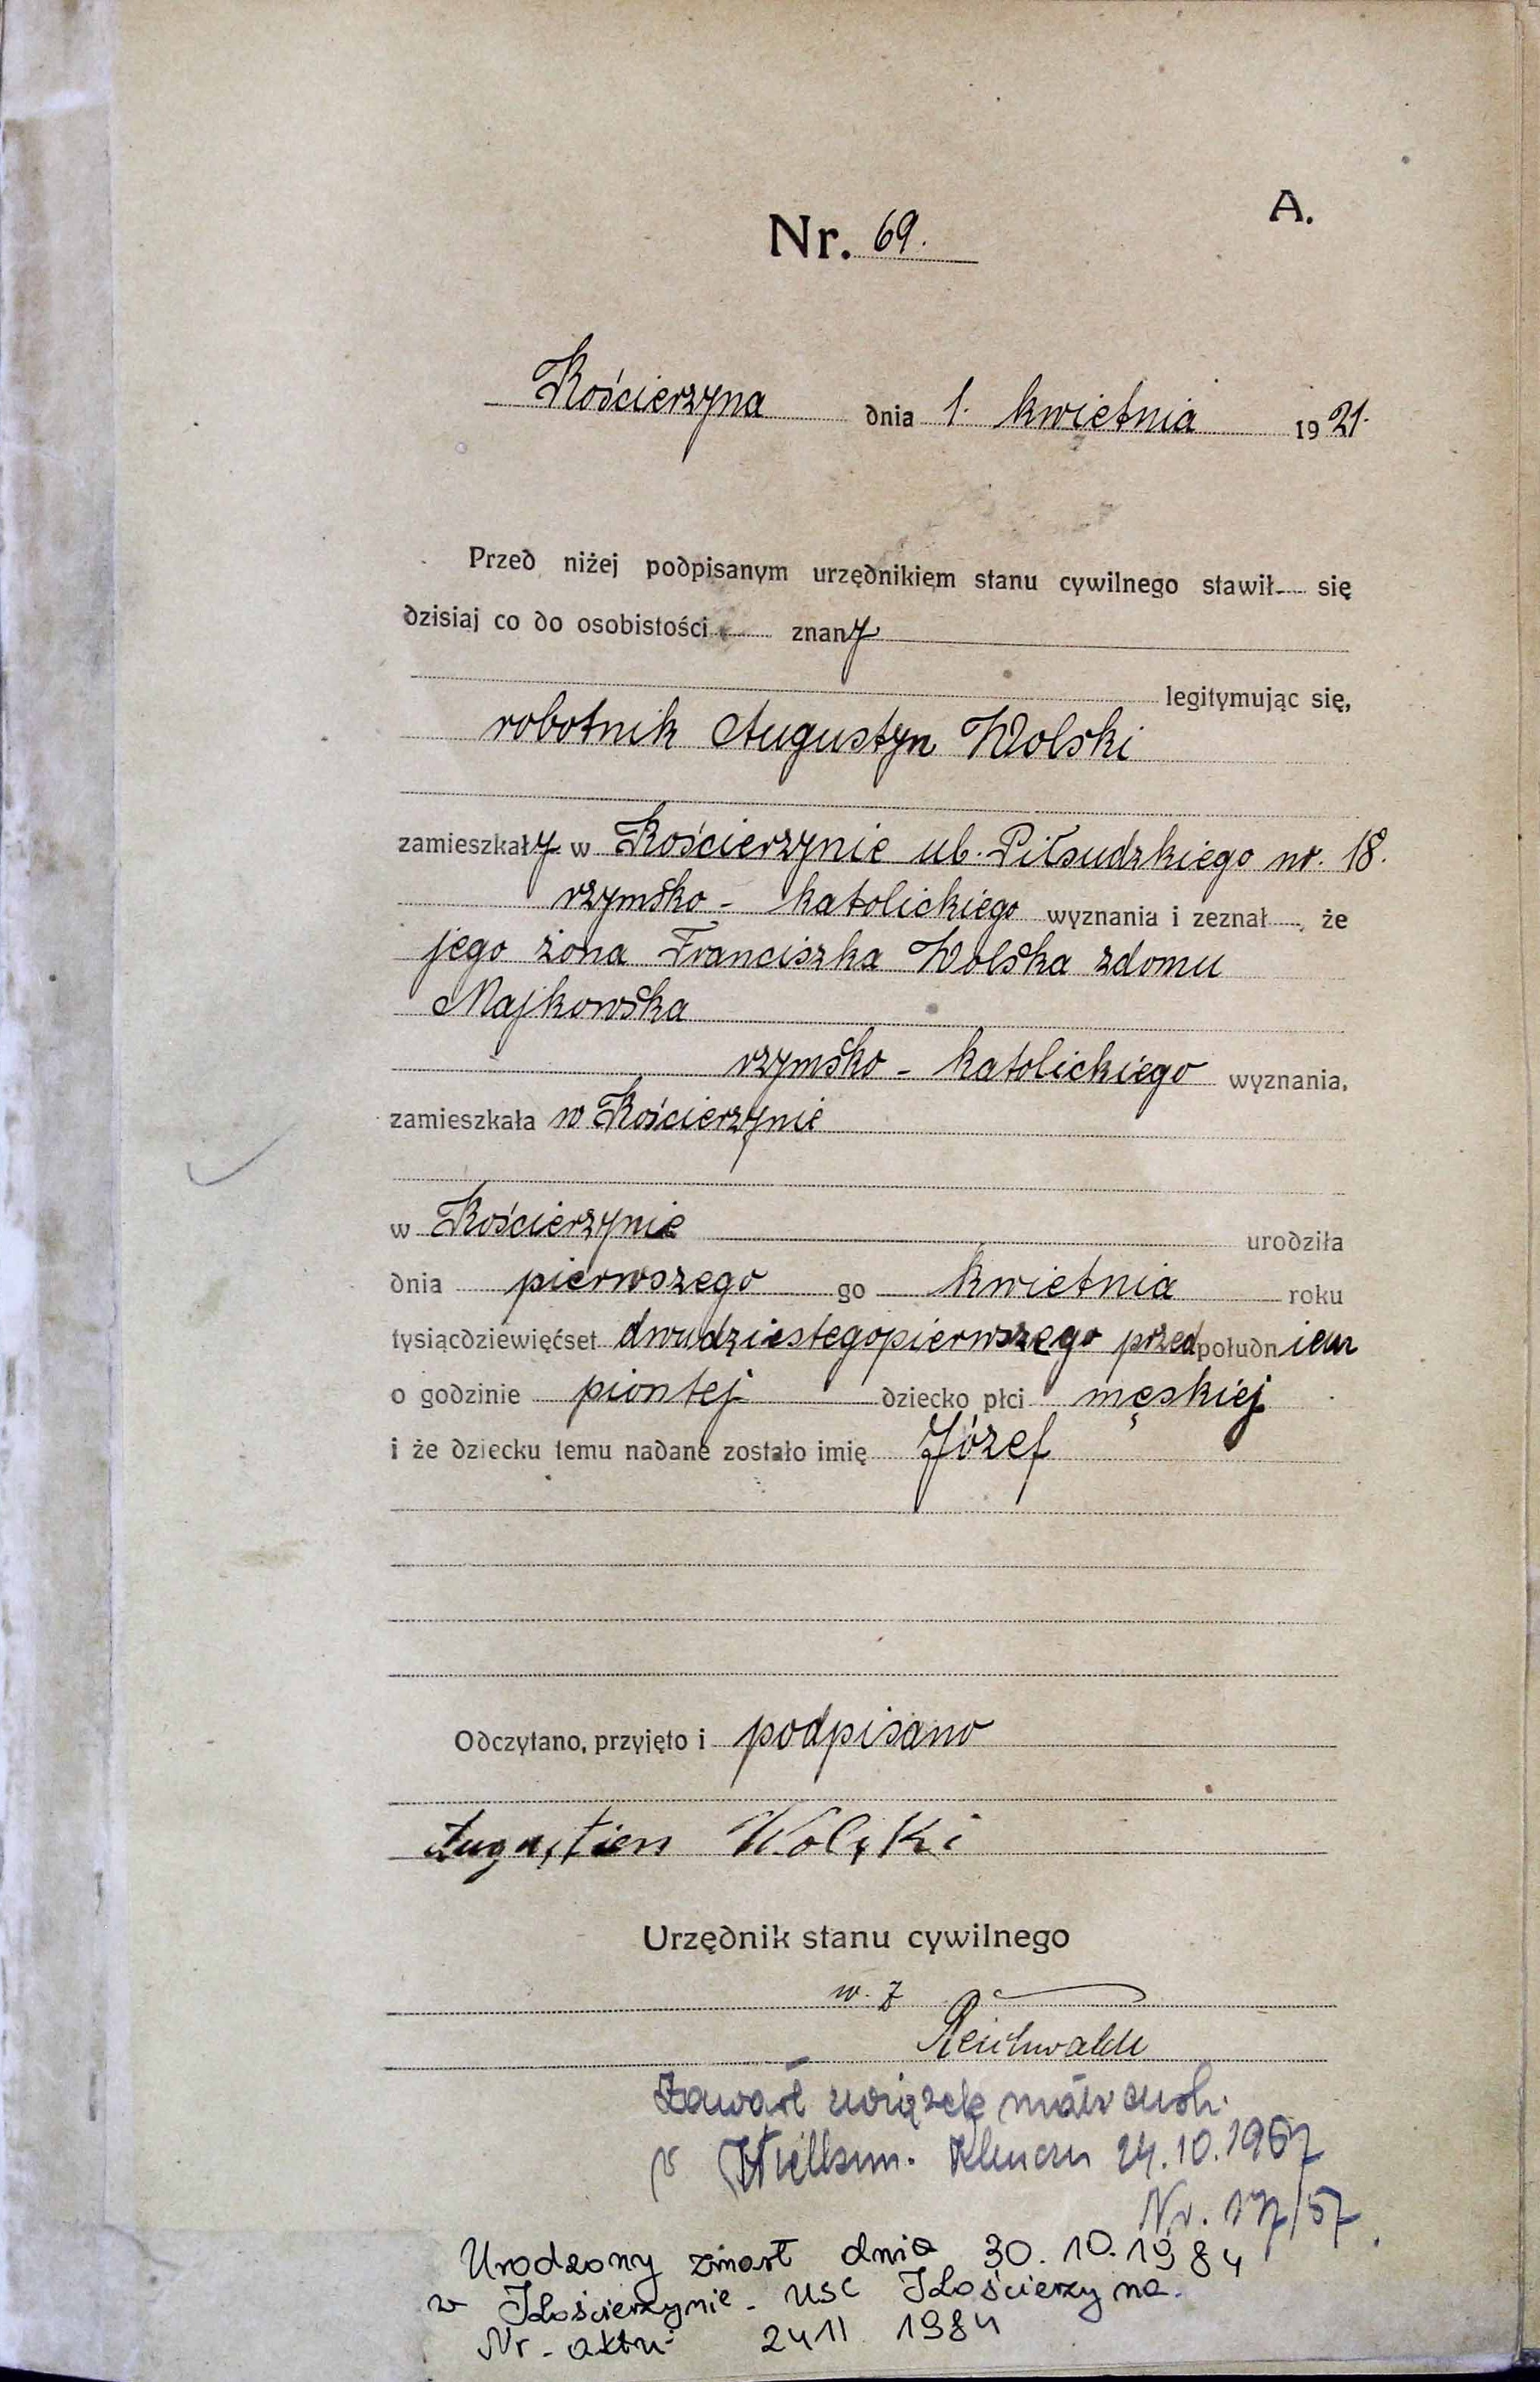 A.
Nr. 69.
Kościerzyna dnia 1. kwietnia 1921.
Przed niżej podpisanym urzędnikiem stanu cywilnego stawił się
dzisiaj co do osobistości znany
legitymując się,
robotnik Augustyn Wolski
zamieszkały w Kościerzynie ul. Piłsudzkiego nr. 18.
rzymsko - katolickiego wyznania i zeznał, że
jego żona Franciszka Wolska zdomu
Majkowska
rzymsko - katolickiego wyznania,
zamieszkała w Kościerzynie
w Kościerzynie urodziła
dnia pierwszego go kwietnia roku
tysiącdziewięćset dwudziestegopierwszego przedpołudniem
o godzinie piontej dziecko płci męskiej
i że dziecku temu nadane zostało imię Józef
Odczytano, przyjęto i podpisano
Augustien Wolski
Urzędnik stanu cywilnego
w. z
Reichwaldt
Zawarł związek
24.10.1957
Nr. 17/57
Urodzony zmarł dnia 30.10.1984
w Kościerzynie - USC Kościerzyna.
Nr - aktu 1984